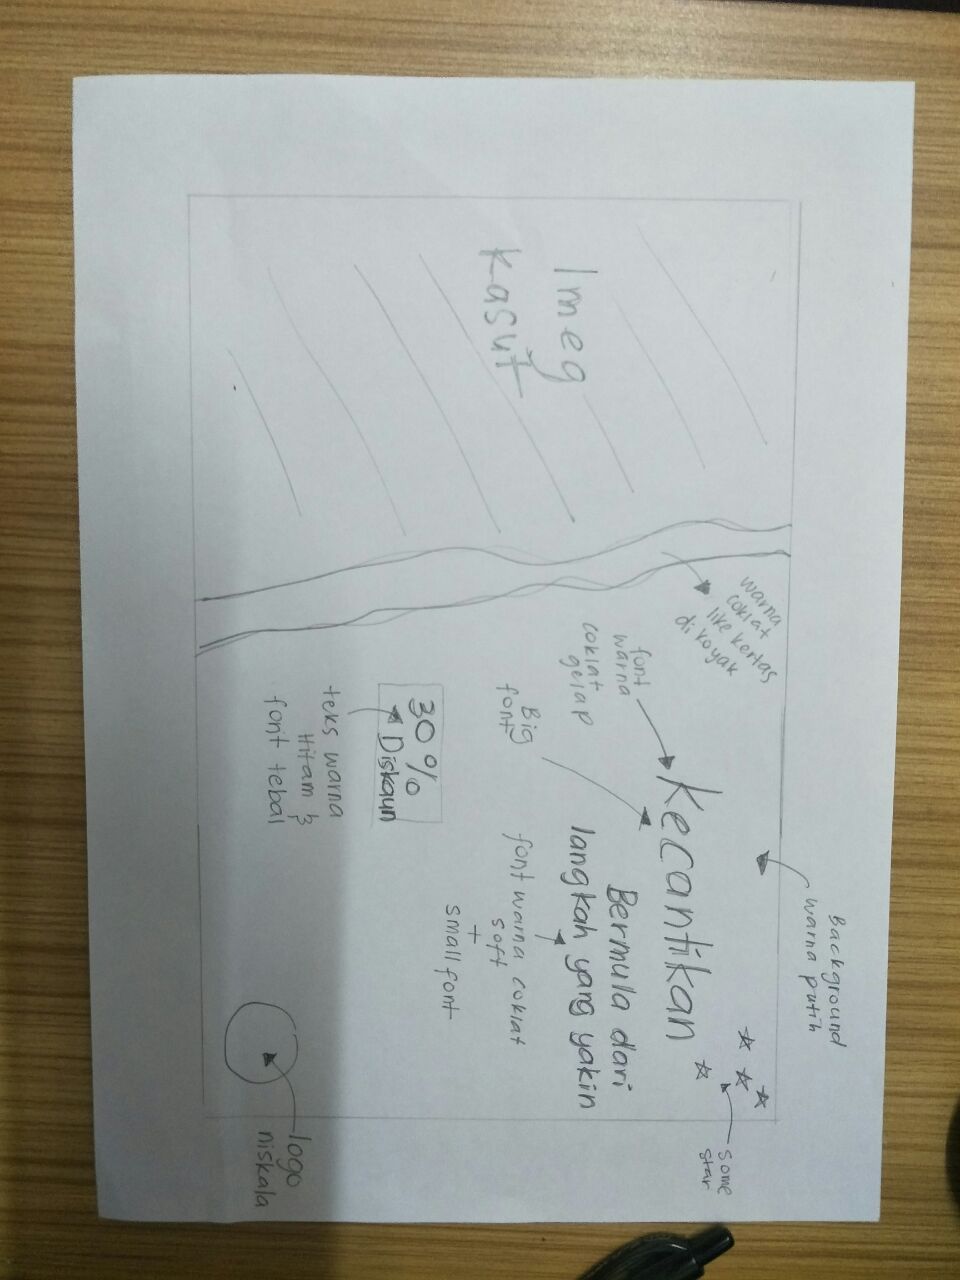 Imeg
Kasut
warna
coklat
like kertas
di koyak
font
warna
coklat
gelap
Kecantikan
Bermula dari
langkah yang yakin
Big
font
font warna coklat
soft
+
small font
30%
Diskaun
teks warna
Hitam &
font tebal
Background
warna putih
some
star
logo
niskala